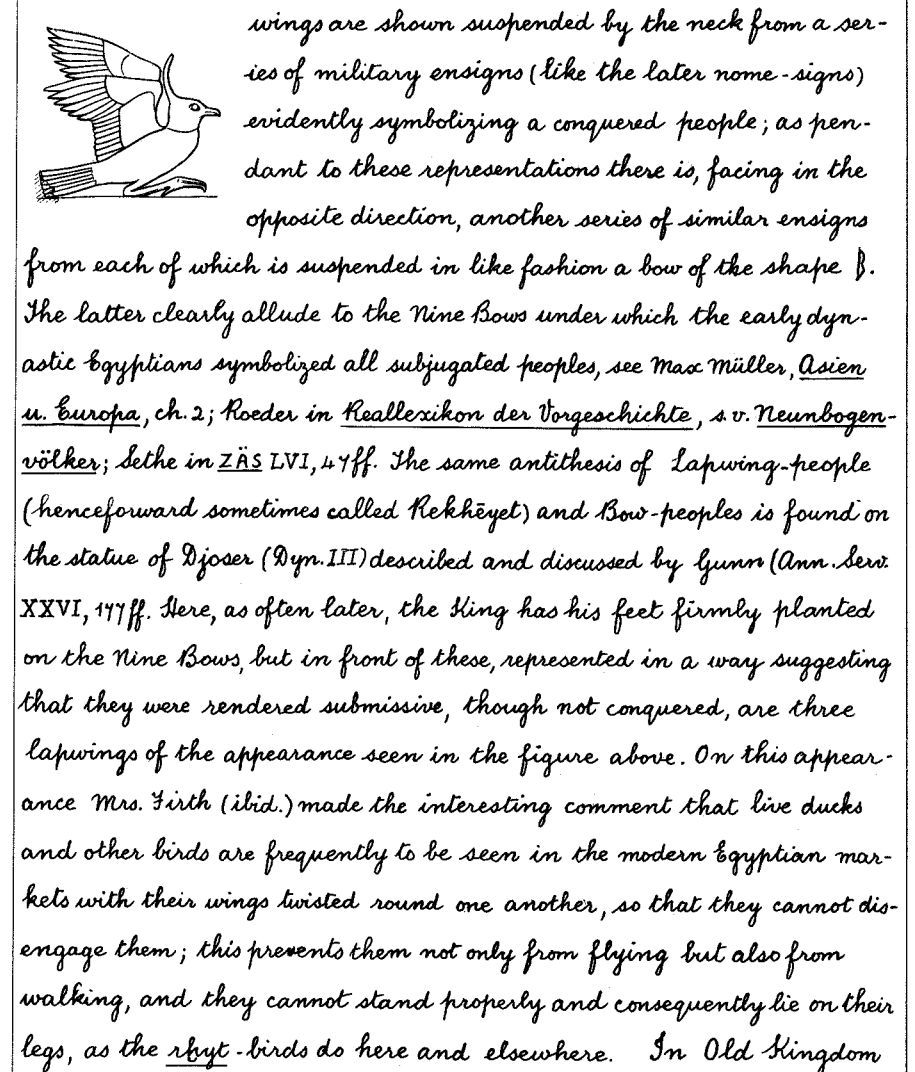 wings are shown suspended by the neck from a ser-
ies of military ensigns (like the later nome-signs)
evidently symbolizing a conquered people; as pen-
dant to these representations there is, facing in the
opposite direction, another series of similar ensigns
from each of which is suspended in like fashion a bow of the shape .
The latter clearly allude to the Nine Bows under which the early dyn-
astic Egyptians symbolized all subjugated peoples, see Max Müller, Asien
u. Europa, ch. 2; Roeder in Reallexikon der Vorgeschichte, s.v. Neunbogen-
völker; Sethe in ZÄS LVI, 47ff. The same antithesis of Lapwing-people
(henceforward sometimes called Rekhēyet) and Bow-peoples is found on
the statue of Djoser (Dyn. III) described and discussed by Gunn (Ann. Serv.
XXVI, 177ff. Here, as often later, the King has his feet firmly planted
on the Nine Bows, but in front of these, represented in a way suggesting
that they were rendered submissive, though not conquered, are three
lapwings of the appearance seen in the figure above. On this appear-
ance Mrs. Firth (ibid.) made the interesting comment that live ducks
and other birds are frequently to be seen in the modern Egyptian mar-
kets with their wings twisted round one another, so that they cannot dis-
engage them; this prevents them not only from flying but also from
walking, and they cannot stand properly and consequently lie on their
legs, as the rḫyt-birds do here and elsewhere. In Old Kingdom